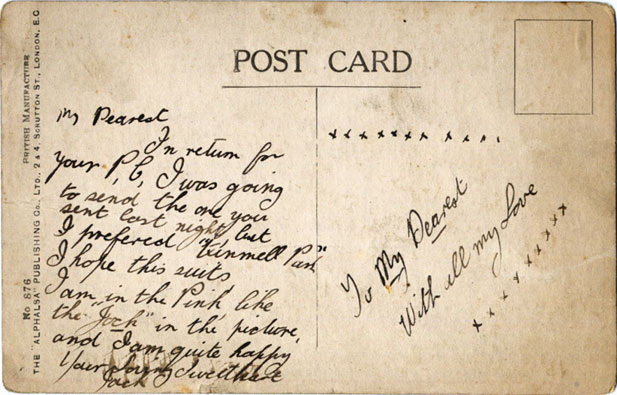 POST CARD
No 876 BRITISH MANUFACTURE
THE "ALPHALSA" PUBLISHING Co., LTD., 2 & 4, SCRUTTON ST., LONDON, E.C.
My Dearest
In return for
your P,C, I was going
to send the one you
sent last night but
I prefered "Kinmell Park"
I hope this suits
I
am "in the Pink" like
the "Jock" in the picture,
and I am quite happy
Your Loving Sweetheart
Jack
x x x x x x x x x x .
To My Dearest
With all my Love
x x x x x x x x x